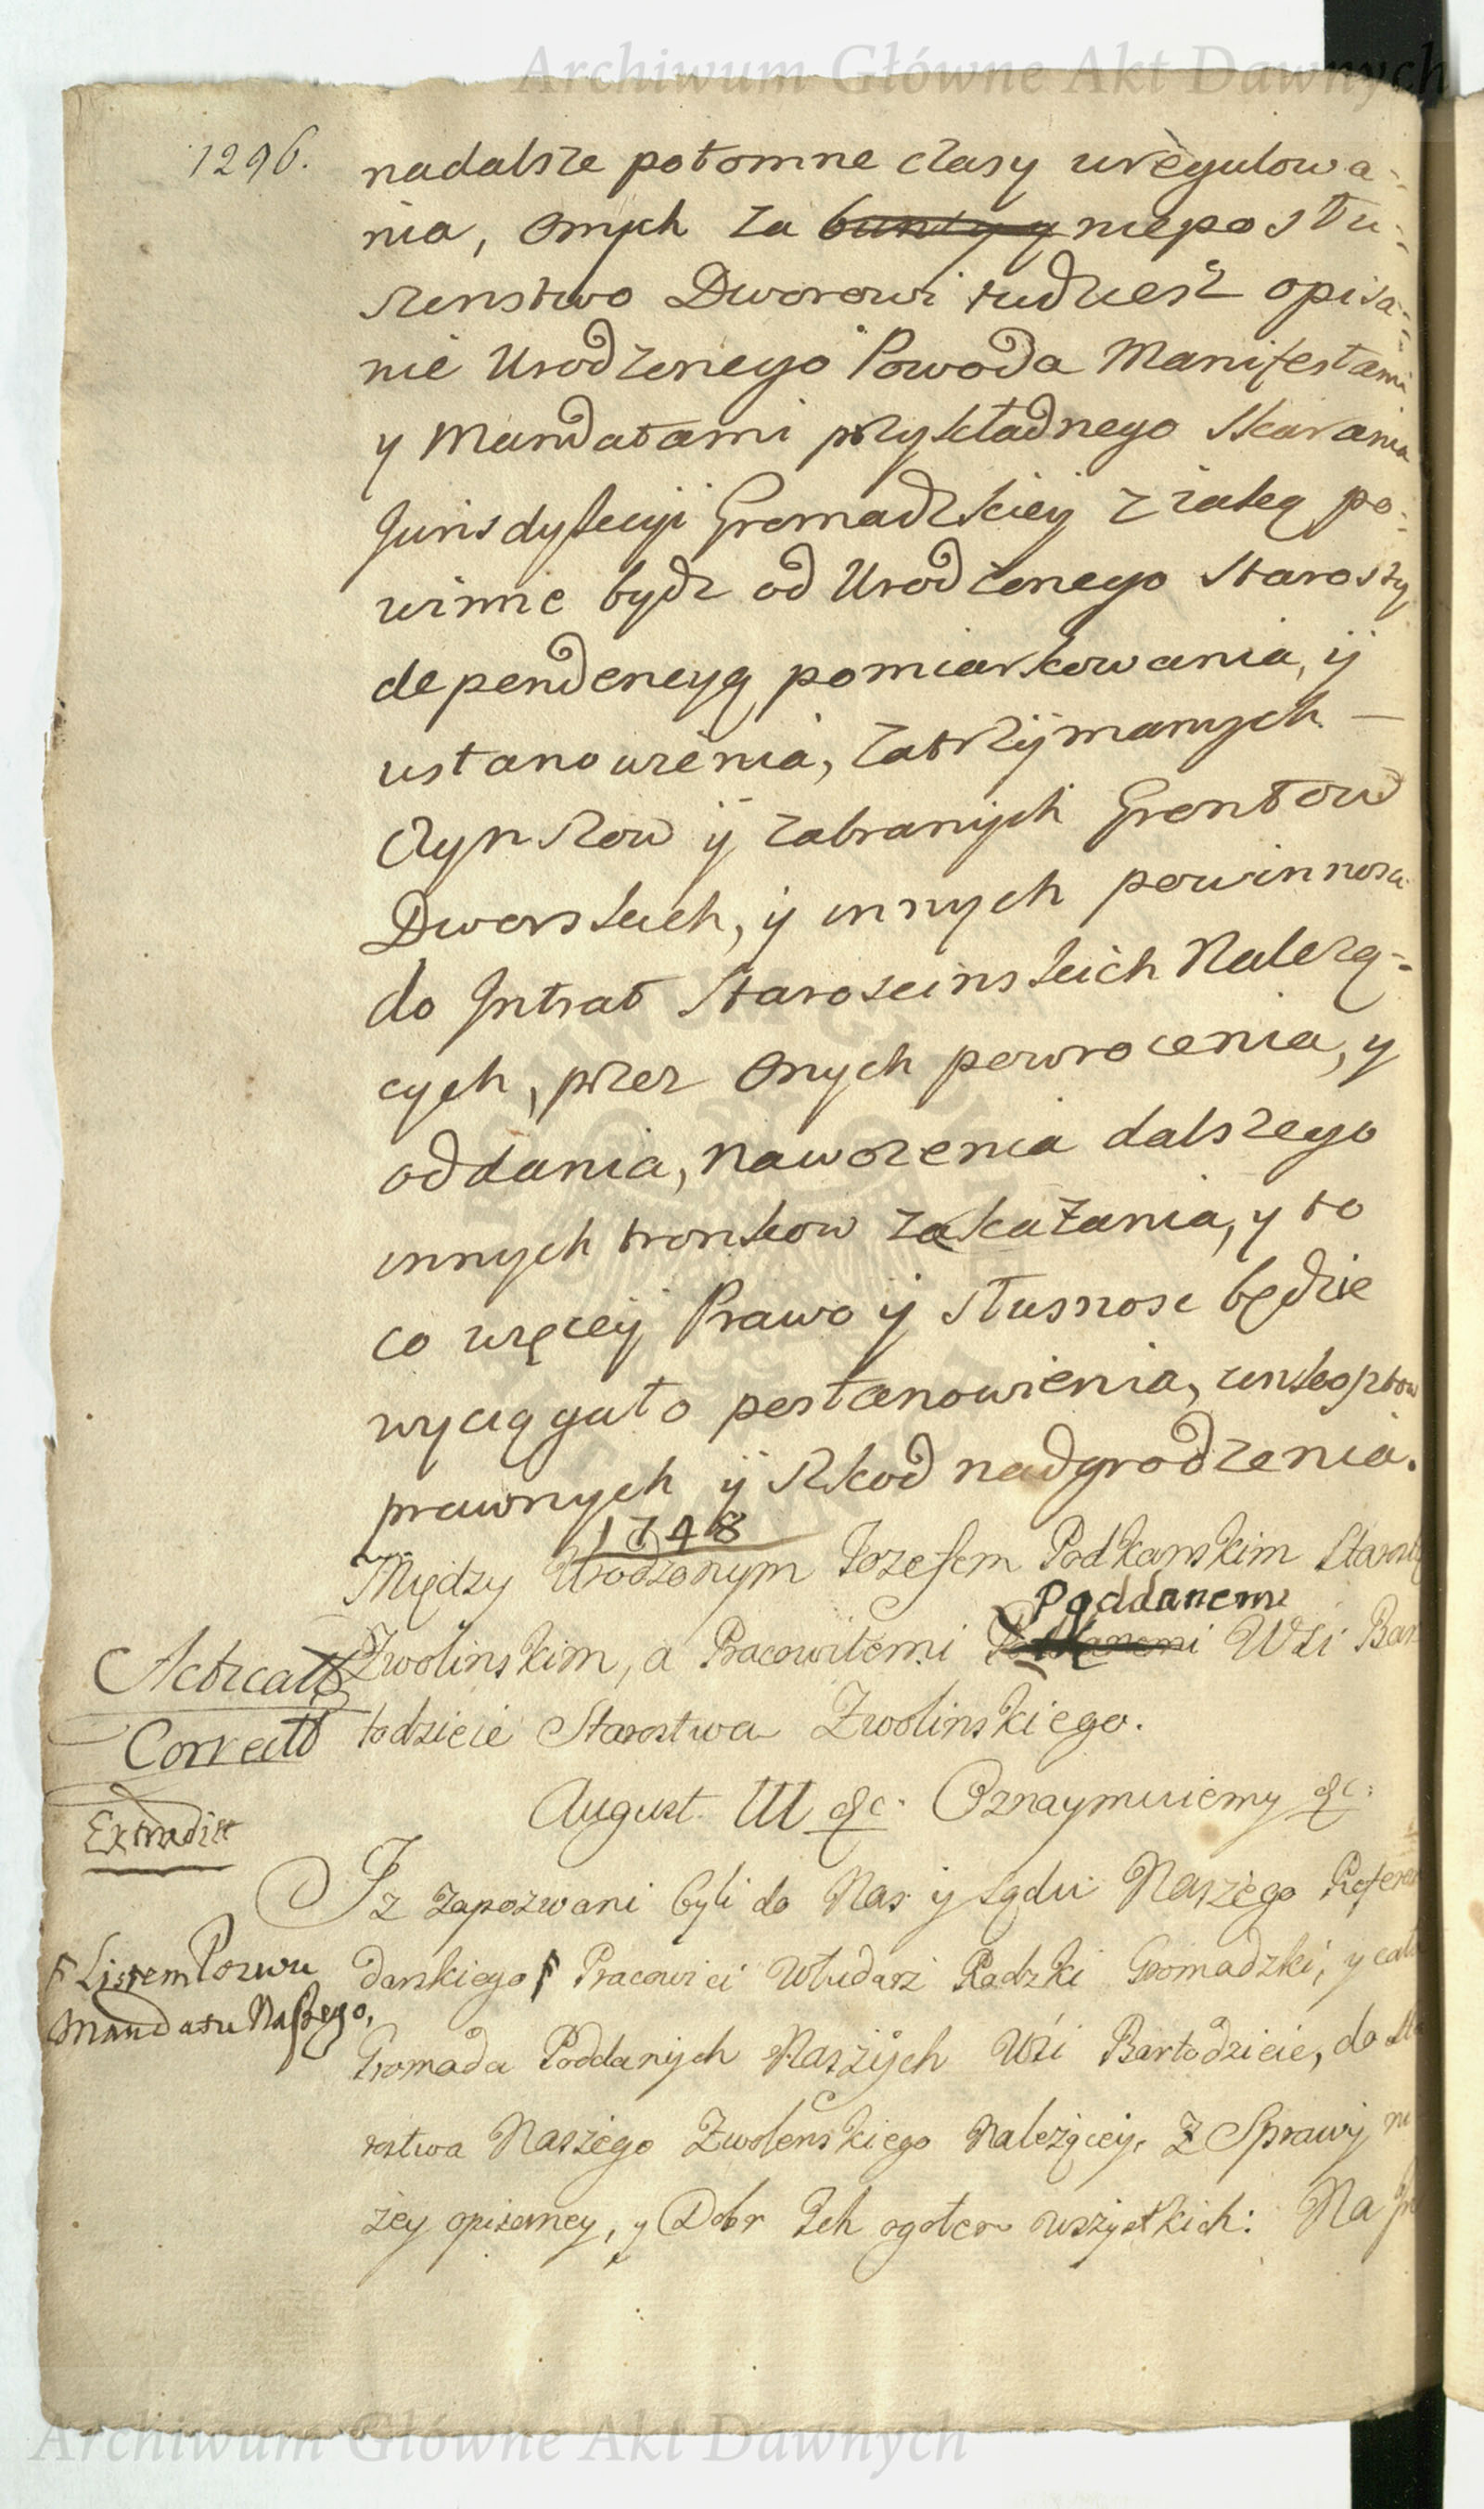 Archiwum Główne Akt Dawnych
1296.
nadalsze potomne czasy uregulowa-
nia, onych za bunty y nieposłu-
szenstwo Dworowi tudziesz opisa-
nie Urodzonego Powoda Manifestami
y Mandatami przykładnego skarania
Jurisdykcyi Gromadzkiey z iaką po-
winne bydz od Urodzonego Starosty
dependencyą pomiarkowania, ij
ustanowienia, zatrzijmanych —
Czynszow ij zabranijch Grontow
Dworskich, ij innych powinnosci
do Intrat Staroscinskich Nalezą-
cych, przez onych powrocenia, y
oddania, nawozenia dalszego
innych tronkow zakazania, y to
co więcey Prawo ij słusznosc będzie
wyciągało postanowienia, unkosztow
prawnych ij szkod nadgrodzenia.
1748
Między Urodzonym Jozefem Podkanskim Starostą
Poddanemi
Zwolinskim, a Pracowitemi Wsi Bar
todzieie Starostwa Zwolinskiego.
Correctũ
Extradit
August III &c. Oznaymuiemy &c:
Iz zapozwani byli do Nas y Sądu Naszego Referen
F Listem Pozwu
Mandatu Naszego,
darskiego F Pracowici Włudarz Radzki Gromadzki, y cała
Gromada Poddanijch Naszijch Wsi Bartodzieie, do Sta
rostwa Naszego Zwolenskiego Nalezącey, Z Sprawij ni
zey opisaney, y Dobr Ich ogołem wszystkich: Na
Archiwum Główne Akt Dawnych